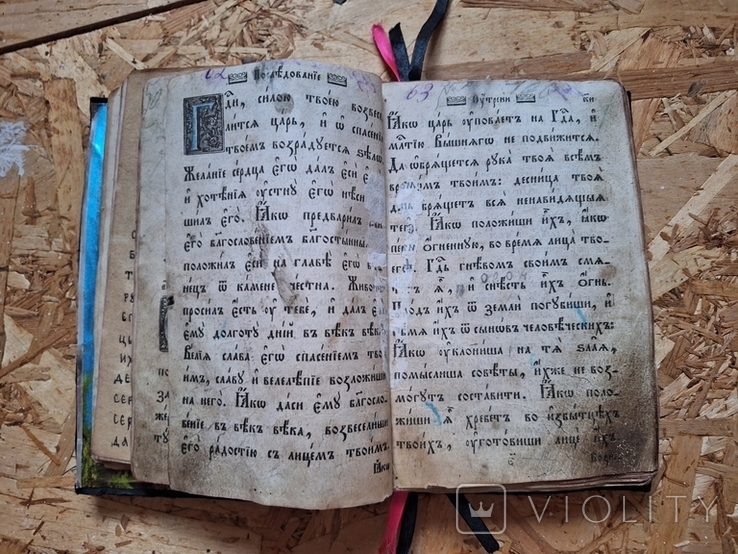 62
Послѣдованіе
Гд҃и, силою твоею возвесе
лится царь, и ѡ спасеніи
твоемъ возрадуется ѕѣлѡ.
Желаніе сердца єгѡ̀ далъ єсѝ є
и хотѣнїѧ оустну єгѡ̀ нѣси
шилъ єго̀. Ꙗкѡ предварилъ
єго̀ благословенїемъ благостыннымъ,
положилъ єсѝ на главѣ єгѡ̀ в
нецъ ѿ камене честна. Живота
просилъ єсть оу тебе, и далъ є
єму̀ долготу̀ дні́й въ вѣкъ вѣка
Велїѧ слава єгѡ̀ спасенїемъ тво
имъ, славу и велелѣпїе возложиши
на него̀. Ꙗкѡ даси єму̀ благосло
вѣнїе въ вѣкъ вѣка, возвеселиши
єго̀ радостїю съ лицемъ твоимъ.
Ꙗкѡ
63
Оутрени
Ꙗкѡ царь оуповаетъ на Гд҃а, и
мл҃тїю Вышнѧгѡ не подвижитсѧ.
Да ѡбрѧщетсѧ рука твоѧ всѣмъ
врагѡмъ твоимъ: десница твоѧ
да ѡбрѧщетъ всѧ ненавидѧщыѧ
тебе. Ꙗкѡ положиши ихъ, ꙗкѡ
пещь огненную, во времѧ лица тво
егѡ̀. Гд҃ь гнѣвомъ своимъ смѧ
тетъ ѧ, и снѣсть ихъ огнь.
Плодъ ихъ ѿ земли погубиши, и
сѣмѧ ихъ ѿ сынѡвъ человѣческихъ:
Ꙗкѡ оуклониша на тѧ ѕлаѧ,
помыслиша совѣты, ихже не воз
могутъ составити. Ꙗкѡ поло
жиши ѧ хребетъ во избытцѣхъ
твоихъ, оуготовиши лице ихъ
VIOLITY